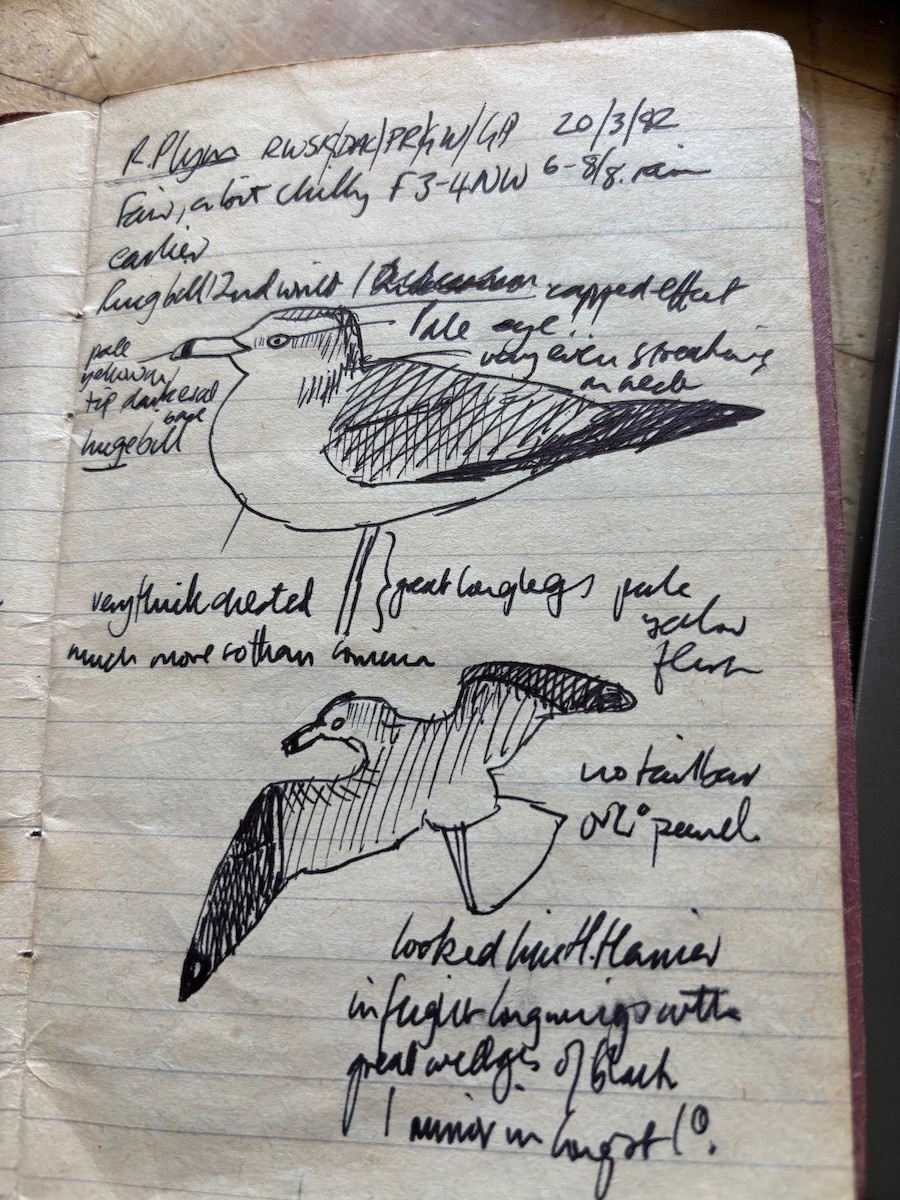 R. Plym RWSK/DAC/PR/KW/GP 20/3/82
Fair, a bit chilly F 3-4 NW 6-8/8. rain
earlier
Ring bill 2nd wint / capped effect
Pale eye
very even streaking
on neck
pale
yellow w/
tip dark and
base
huge bill
very thick chested
much more so than
great long legs pale
yellow
flesh
no tail bar
or 2° panel
looked like H. Harrier
in flight long wings with
great wedges of black
1 mirror in longest 1°.